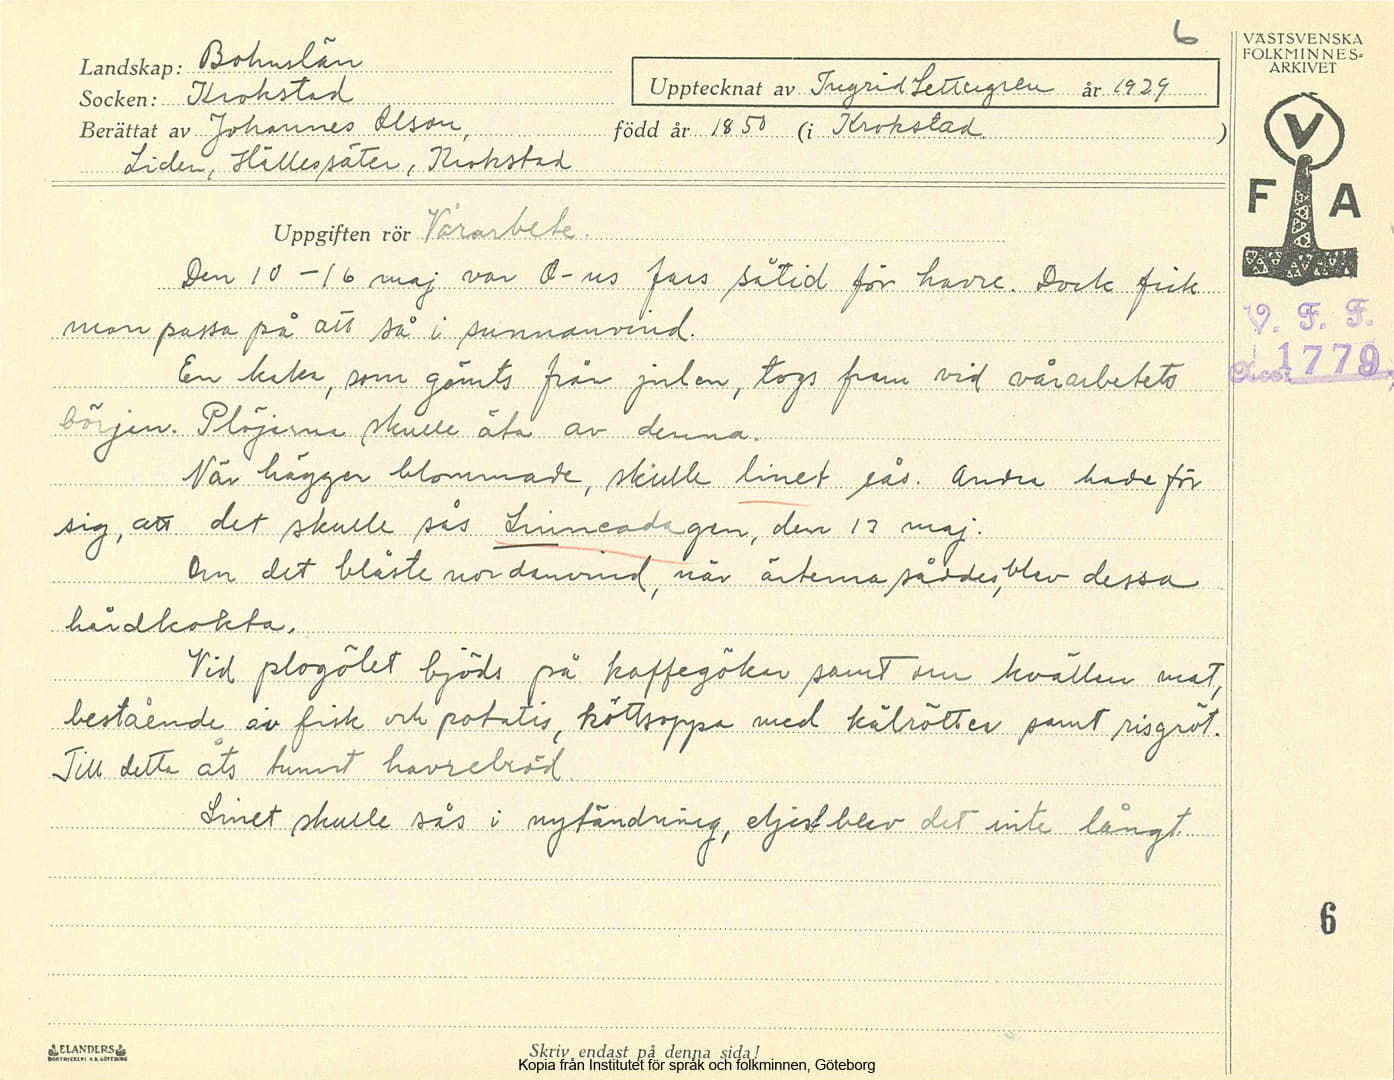 6
Landskap: Bohuslän
Socken: Krokstad
Upptecknat av Ingrid Settergren år 1929
Berättat av Johannes Olson, född år 1850 (i Krokstad )
Liden, Hällessäter, Krokstad
VÄSTSVENSKA
FOLKMINNES-
ARKIVET
V
F A
V. F. F.
Acc. 1779
Uppgiften rör Vårarbete.
Den 10-16 maj var O-ns fars såtid för havre. Dock fick
man passa på att så i sunnanvind.
En kaka, som gömts från julen, togs fram vid vårarbetets
början. Plöjarna skulle äta av denna.
När häggen blommade, skulle linet sås. Andra hade för
sig, att det skulle sås Linneadagen, den 13 maj.
Om det blåste nordanvind, när ärterna såddes, blev dessa
hårdkokta.
Vid plogölet bjöds på kaffegökar samt om kvällen mat,
bestående av fisk och potatis, köttsoppa med kålrötter samt risgröt.
Till detta åts tunnt havrebröd.
Linet skulle sås i nytändning, eljest blev det inte långt.
6
ELANDERS
BOKTRYCKERI A.B. GÖTEBORG
Skriv endast på denna sida!
Kopia från Institutet för språk och folkminnen, Göteborg